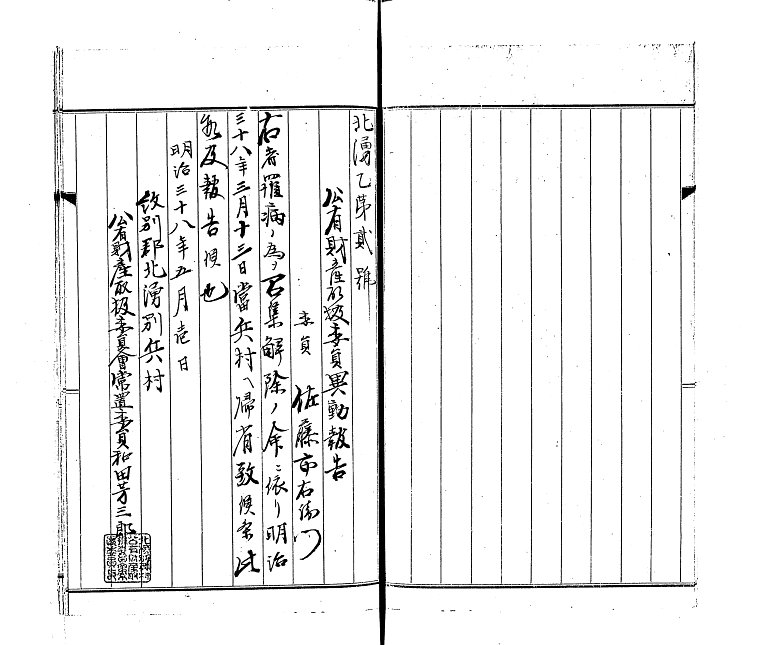 北湧乙第貳號
公有財産取扱委員異動報告
委員 佐藤市右衛門
右者罹病ノ為ヲ召集解除ノ命ニ依リ明治
三十八年三月十三日當兵村ヘ帰省致候条此
段及報告候也
明治三十八年五月壱日
紋別郡北湧別兵村
公有財産取扱委員會常置委員和田芳三郎